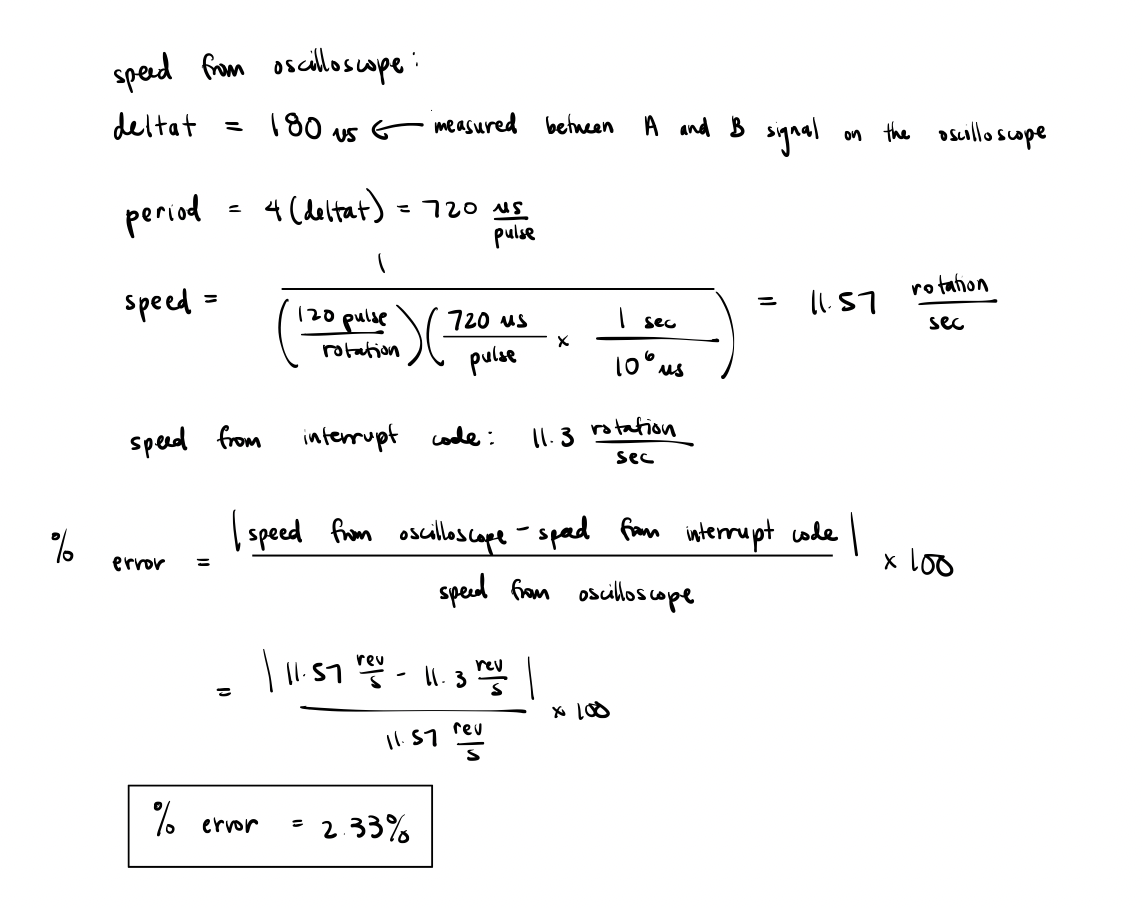 speed from oscilloscope:
deltat = 180 us ← measured between A and B signal on the oscilloscope
period = 4(deltat) = 720 us/pulse
speed = 1 / ((120 pulse/rotation)(720 us/pulse × 1 sec/10⁶ us)) = 11.57 rotation/sec
speed from interrupt code: 11.3 rotation/sec
% error = |speed from oscilloscope - speed from interrupt code| / speed from oscilloscope × 100
= |11.57 rev/s - 11.3 rev/s| / 11.57 rev/s × 100
% error = 2.33%